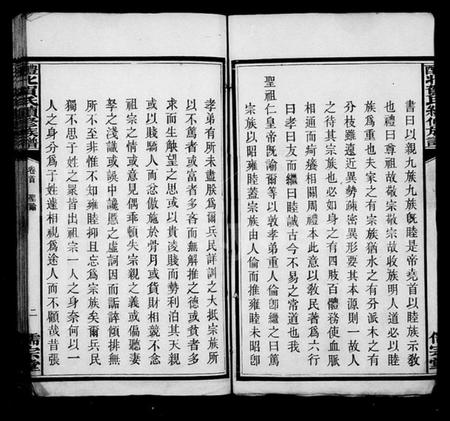 書曰以親九族九族既睦是帝堯首以睦族示教
也禮曰尊祖故敬宗敬宗故收族明人道必以睦
族為重也夫家之有宗族猶水之有分派木之有
分枝雖遠近異勢疎密異形要其本源則一故人
之待其宗族也必如身之有四肢百體務使血脈
相通而疴癢相關周禮本此意以教民著為六行
曰孝曰友而繼曰睦誠古今不易之常道也
聖祖仁皇帝既諭爾等以敦孝弟重人倫即繼之曰篤
宗族以昭雍睦蓋宗族由人倫而推雍睦未昭即
孝弟有所未盡朕為爾兵民詳訓之大抵宗族所
以不篤者或富者多吝而無解推之德或貧者多
求而生觖望之思或以貴凌賤而勢利汨其天親
或以賤驕人而忿傲施於骨肉或貨財相競不念
祖宗之情或意見偶乖頓失宗親之義或偏聽妻
孥之淺識或誤中讒慝之虛詞因而詬誶傾排無
所不至非惟不知雍睦抑且忘為宗族矣爾兵民
獨不思子姓之眾皆出祖宗一人之身奈何以一
人之身分為子姓遽相視為途人而不顧哉昔張
卷首
聖諭
二
儒宗堂